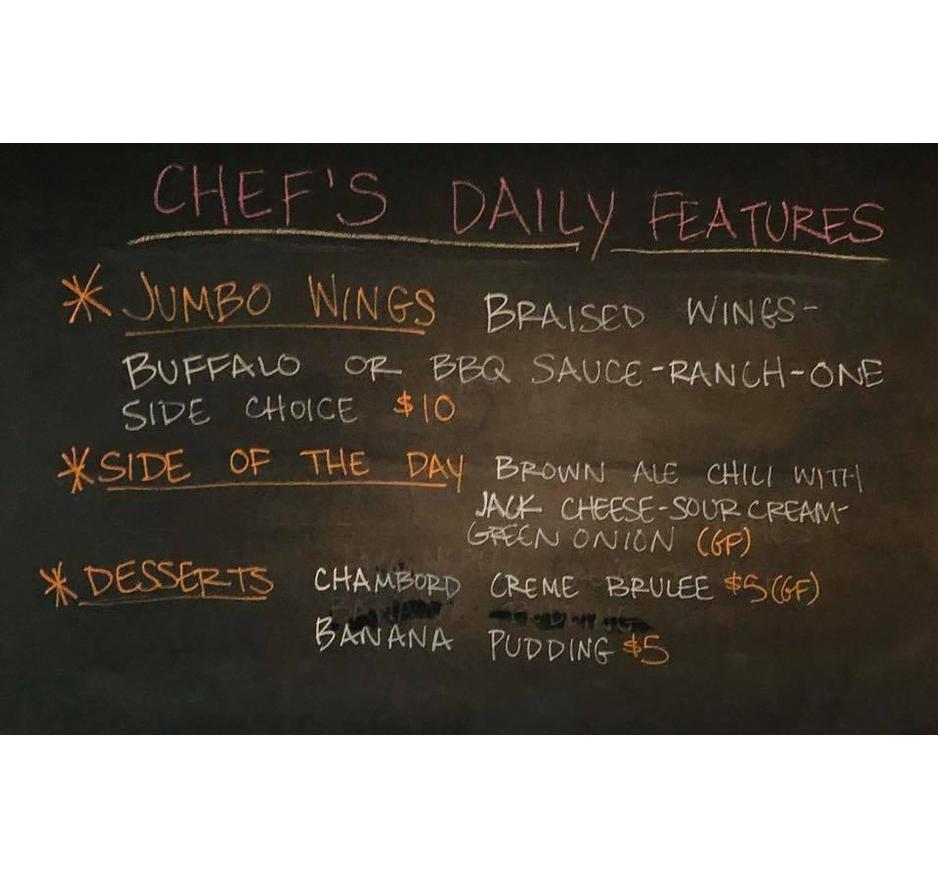 CHEF'S DAILY FEATURES
* JUMBO WINGS BRAISED WINGS-
BUFFALO OR BBQ SAUCE-RANCH-ONE
SIDE CHOICE $10
* SIDE OF THE DAY BROWN ALE CHILI WITH
JACK CHEESE-SOUR CREAM-
GREEN ONION (GF)
* DESSERTS CHAMBORD CREME BRULEE $5 (GF)
BANANA PUDDING $5